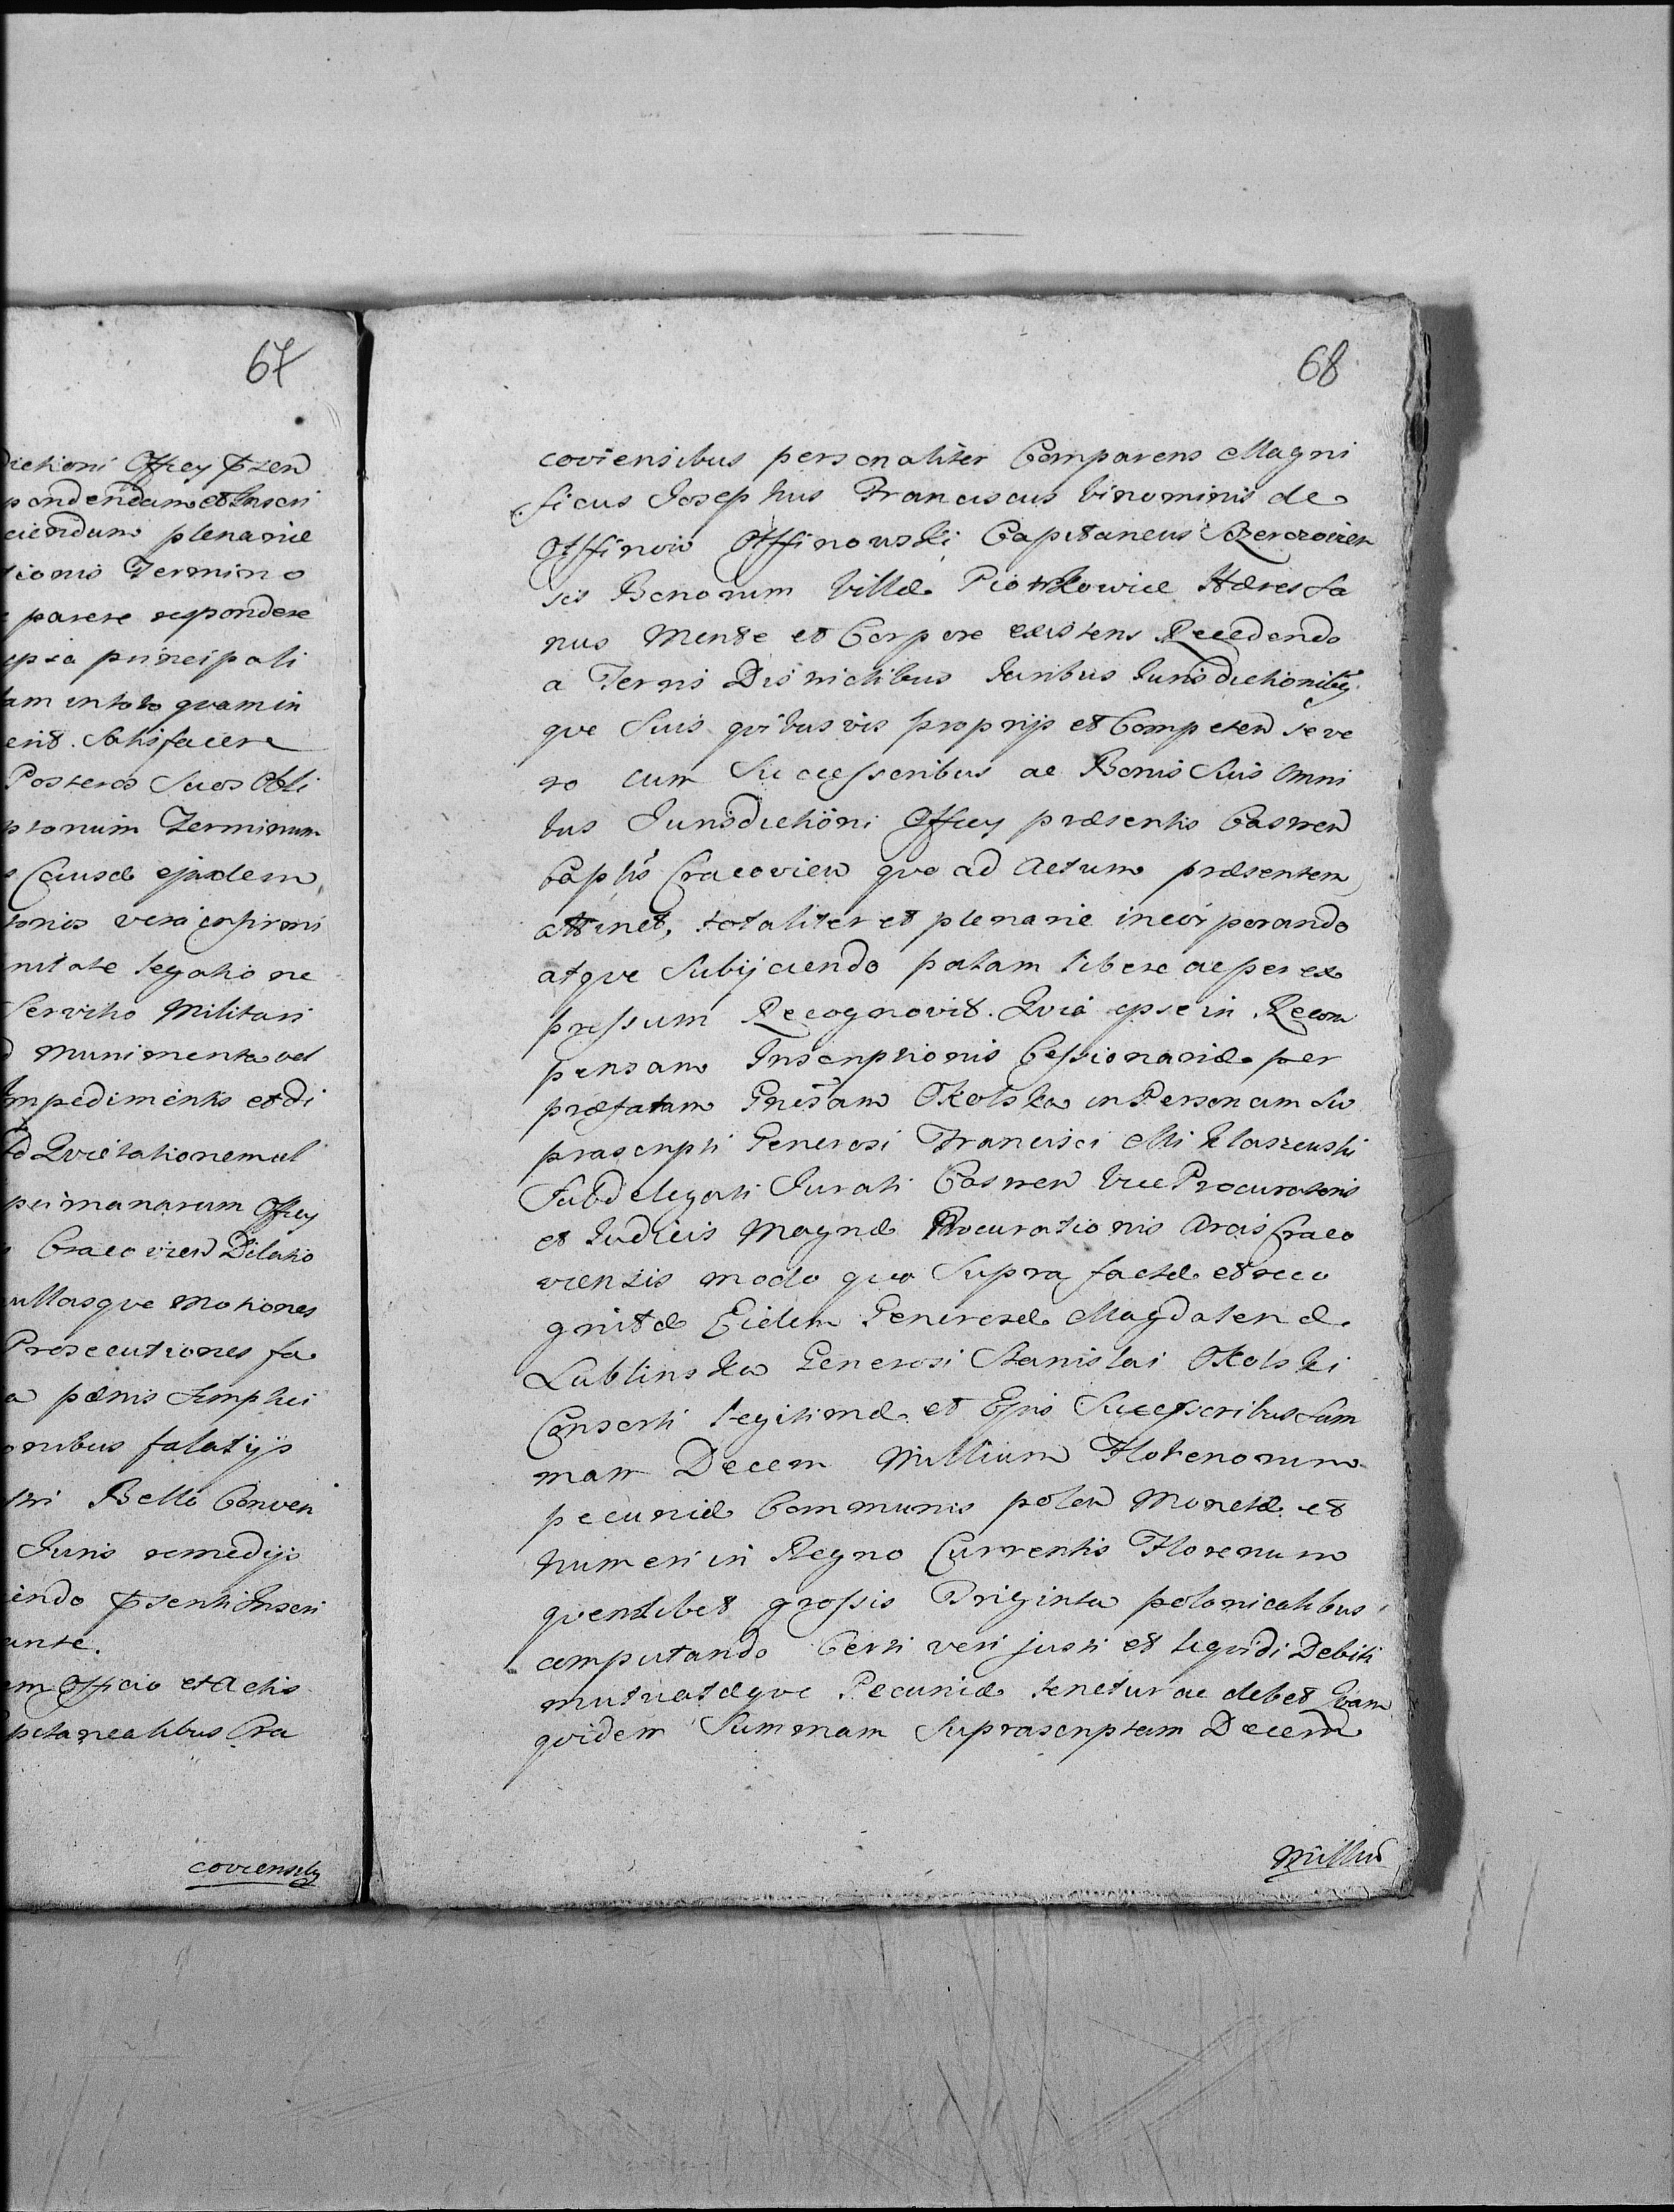 67
dictioni Officy pñsen
pondendum et Inscri
ciendum plenarie
tionis Termino
parere respondere
ipsa principali
am in toto quam in
erit. Satisfacere
Posteros Suos Obli
ptorum Terminum
Causæ ejusdem
tonis vera infirmi
nitate legatione
Servitio Militari
Munimenta vel
Impedimentis et di
Qvietationem vel
primanarum Officy
Cracovien Dilatio
ullasqve Motiones
Prosecutiones fa
a pænis Simplici
onibus falatijs
stri Bello Conven
Juris remedijs
iendo pñsenti Inscri
ante.
em Officio et Actis
pitanealibus Cra
coviensibq
68
coviensibus personaliter Comparens Magni
ficus Josephus Franciscus binominis de
Otffinow Otffinowski Capitaneus Szerczovien
sis Bonorum Villæ Piotrkowice Hæres Sa
nus Mente et Corpore existens Recedendo
a Terris Districtibus Juribus Jurisdictionibq
qve Suis qvibusvis proprijs et Competen se ve
ro cum Successoribus ac Bonis Suis Omni
bus Jurisdictioni Officy præsentis Castren
Captis Cracovien qvo ad Actum præsentem
attinet, totaliter et plenarie incorporando
atqve Subijciendo palam libere ac per ex
pressum Recognovit. Qvia ipse in Recom
pensam Inscriptionis Cessionariæ per
præfatam Gnesam Okolska in Personam Su
prascripti Generosi Francisci Miklaszewski
Subdelegati Jurati Castren Vice Procuratoris
et Judicis Magnæ Procurationis Arcis Craco
viensis modo qvo Supra factæ et reco
gnitæ Eidem Generosæ Magdalenæ
Lublinska Generosi Stanislai Okolski
Consorti legitimæ et Ejus Successoribus Sum
mam Decem Millium Florenorum
pecuniæ Communis polon Monetæ et
Numeri in Regno Currentis Florenum
qvemlibet grossis Triginta polonicalibus
computando Certi veri justi et liqvidi Debiti
mutuatæqve Pecuniæ tenetur ac debet Qvam
qvidem Summam Suprascriptam Decem
Milliu